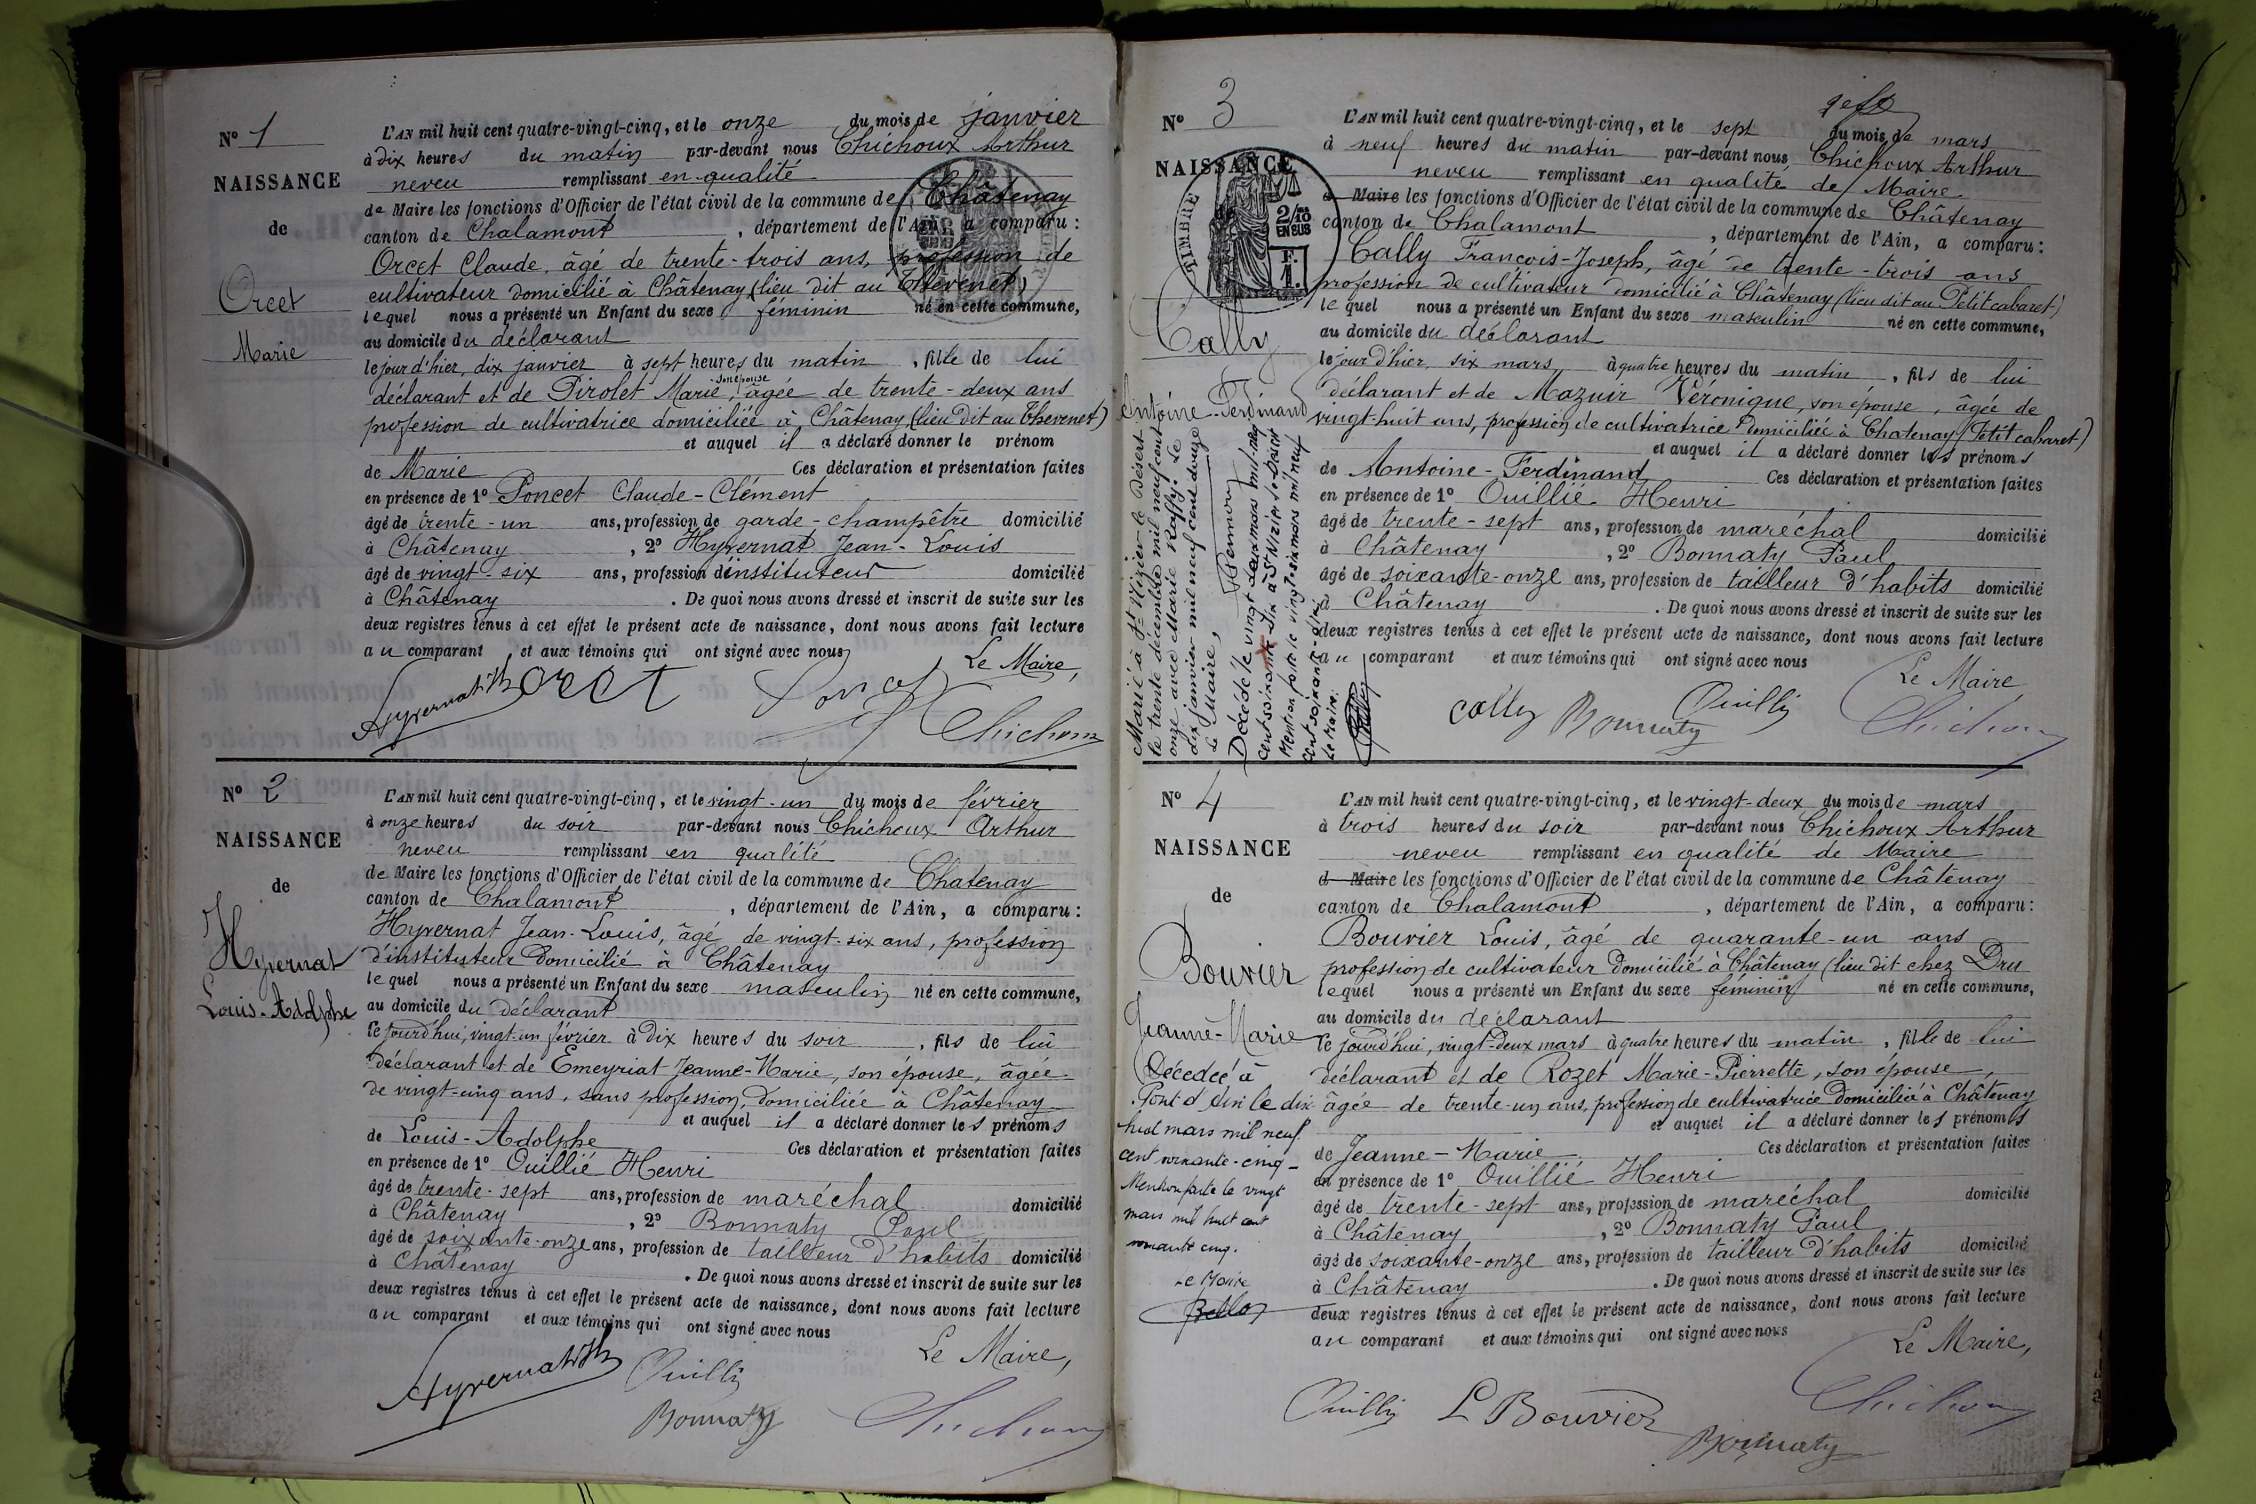 N° 1
NAISSANCE
de
Orcet
Marie
L'AN mil huit cent quatre-vingt-cinq, et le onze du mois de janvier
à dix heures du matin par-devant nous Chichoux Arthur
neveu remplissant en qualité
de Maire les fonctions d'Officier de l'état civil de la commune de Châtenay
canton de Chalamont, département de l'Ain, a comparu :
Orcet Claude, âgé de trente-trois ans, profession de
cultivateur domicilié à Châtenay (lieu dit au Thévenet)
lequel nous a présenté un Enfant du sexe féminin né en cette commune,
au domicile du déclarant
le jour d'hier, dix janvier à sept heures du matin, fille de lui
son épouse
déclarant et de Pirolet Marie, âgée de trente-deux ans
profession de cultivatrice domiciliée à Châtenay (lieu dit au Thevenet)
et auquel il a déclaré donner le prénom
de Marie Ces déclaration et présentation faites
en présence de 1° Poncet Claude-Clément
âgé de trente-un ans, profession de garde-champêtre domicilié
à Châtenay, 2° Hyvernat Jean-Louis
âgé de vingt-six ans, profession d'instituteur domicilié
à Châtenay. De quoi nous avons dressé et inscrit de suite sur les
deux registres tenus à cet effet le présent acte de naissance, dont nous avons fait lecture
au comparant et aux témoins qui ont signé avec nous
Le Maire,
Hyvernat Orcet Poncet Chichoux
N° 2
NAISSANCE
de
Hyvernat
Louis-Adolphe
L'AN mil huit cent quatre-vingt-cinq, et le vingt-un du mois de février
à onze heures du soir par-devant nous Chichoux Arthur
neveu remplissant en qualité
de Maire les fonctions d'Officier de l'état civil de la commune de Chatenay
canton de Chalamont, département de l'Ain, a comparu :
Hyvernat Jean-Louis, âgé de vingt-six ans, profession
d'instituteur domicilié à Châtenay
lequel nous a présenté un Enfant du sexe masculin né en cette commune,
au domicile du déclarant
le jourd'hui, vingt-un février à dix heures du soir, fils de lui
déclarant et de Emeyriat Jeanne-Marie, son épouse, âgée
de vingt-cinq ans, sans profession, domiciliée à Châtenay
et auquel il a déclaré donner les prénoms
de Louis-Adolphe Ces déclaration et présentation faites
en présence de 1° Ouillié Henri
âgé de trente-sept ans, profession de maréchal domicilié
à Châtenay, 2° Bonnaty Paul
âgé de soixante-onze ans, profession de tailleur d'habits domicilié
à Châtenay. De quoi nous avons dressé et inscrit de suite sur les
deux registres tenus à cet effet le présent acte de naissance, dont nous avons fait lecture
au comparant et aux témoins qui ont signé avec nous
Le Maire,
Hyvernat Ouillié
Bonnaty Chichoux
N° 3
NAISSANCE
TIMBRE
2/10 EN SUS
F. 1.
Cally
Antoine-Ferdinand
Marié à St Nizier-le-Désert
le trente décembre mil neuf cent
onze avec Marie Raffy. Le
dix janvier mil neuf cent douze
Le Maire,
Décédé le vingt deux mars mil neuf
cent soixante Din à St NIZIER-le-DESERT
Mention faite le vingt-six mars mil neuf
cent soixante
Le Maire:
L'AN mil huit cent quatre-vingt-cinq, et le sept du mois de mars
à neuf heures du matin par-devant nous Chichoux Arthur
neveu remplissant en qualité de Maire
de Maire les fonctions d'Officier de l'état civil de la commune de Châtenay
canton de Chalamont, département de l'Ain, a comparu :
Cally François-Joseph, âgé de trente-trois ans
profession de cultivateur domicilié à Châtenay (lieu dit au Petit cabaret)
lequel nous a présenté un Enfant du sexe masculin né en cette commune,
au domicile du déclarant
le jour d'hier, six mars à quatre heures du matin, fils de lui
déclarant et de Mazuir Véronique, son épouse, âgée de
vingt-huit ans, profession de cultivatrice domiciliée à Chatenay (Petit cabaret)
et auquel il a déclaré donner les prénoms
de Antoine-Ferdinand Ces déclaration et présentation faites
en présence de 1° Ouillié Henri
âgé de trente-sept ans, profession de maréchal domicilié
à Châtenay, 2° Bonnaty Paul
âgé de soixante-onze ans, profession de tailleur d'habits domicilié
à Châtenay. De quoi nous avons dressé et inscrit de suite sur les
deux registres tenus à cet effet le présent acte de naissance, dont nous avons fait lecture
au comparant et aux témoins qui ont signé avec nous
Le Maire,
Cally Bonnaty Ouillié Chichoux
N° 4
NAISSANCE
de
Bouvier
Jeanne-Marie
Décédée à
Pont d'Ain le dix
huit mars mil neuf
cent soixante-cinq-
Mention faite le vingt
mars mil huit cent
soixante cinq.
Le Maire
L'AN mil huit cent quatre-vingt-cinq, et le vingt-deux du mois de mars
à trois heures du soir par-devant nous Chichoux Arthur
neveu remplissant en qualité de Maire
de Maire les fonctions d'Officier de l'état civil de la commune de Châtenay
canton de Chalamont, département de l'Ain, a comparu :
Bouvier Louis, âgé de quarante-un ans
profession de cultivateur domicilié à Châtenay (lieu dit chez Dru
lequel nous a présenté un Enfant du sexe féminin né en cette commune,
au domicile du déclarant
le jourd'hui, vingt-deux mars à quatre heures du matin, fille de lui
déclarant et de Rozet Marie-Pierrette, son épouse,
âgée de trente-un ans, profession de cultivatrice domiciliée à Châtenay
et auquel il a déclaré donner les prénoms
de Jeanne-Marie Ces déclaration et présentation faites
en présence de 1° Ouillié Henri
âgé de trente-sept ans, profession de maréchal domicilié
à Châtenay, 2° Bonnaty Paul
âgé de soixante-onze ans, profession de tailleur d'habits domicilié
à Châtenay. De quoi nous avons dressé et inscrit de suite sur les
deux registres tenus à cet effet le présent acte de naissance, dont nous avons fait lecture
au comparant et aux témoins qui ont signé avec nous
Le Maire,
Ouillié L Bouvier Bonnaty Chichoux